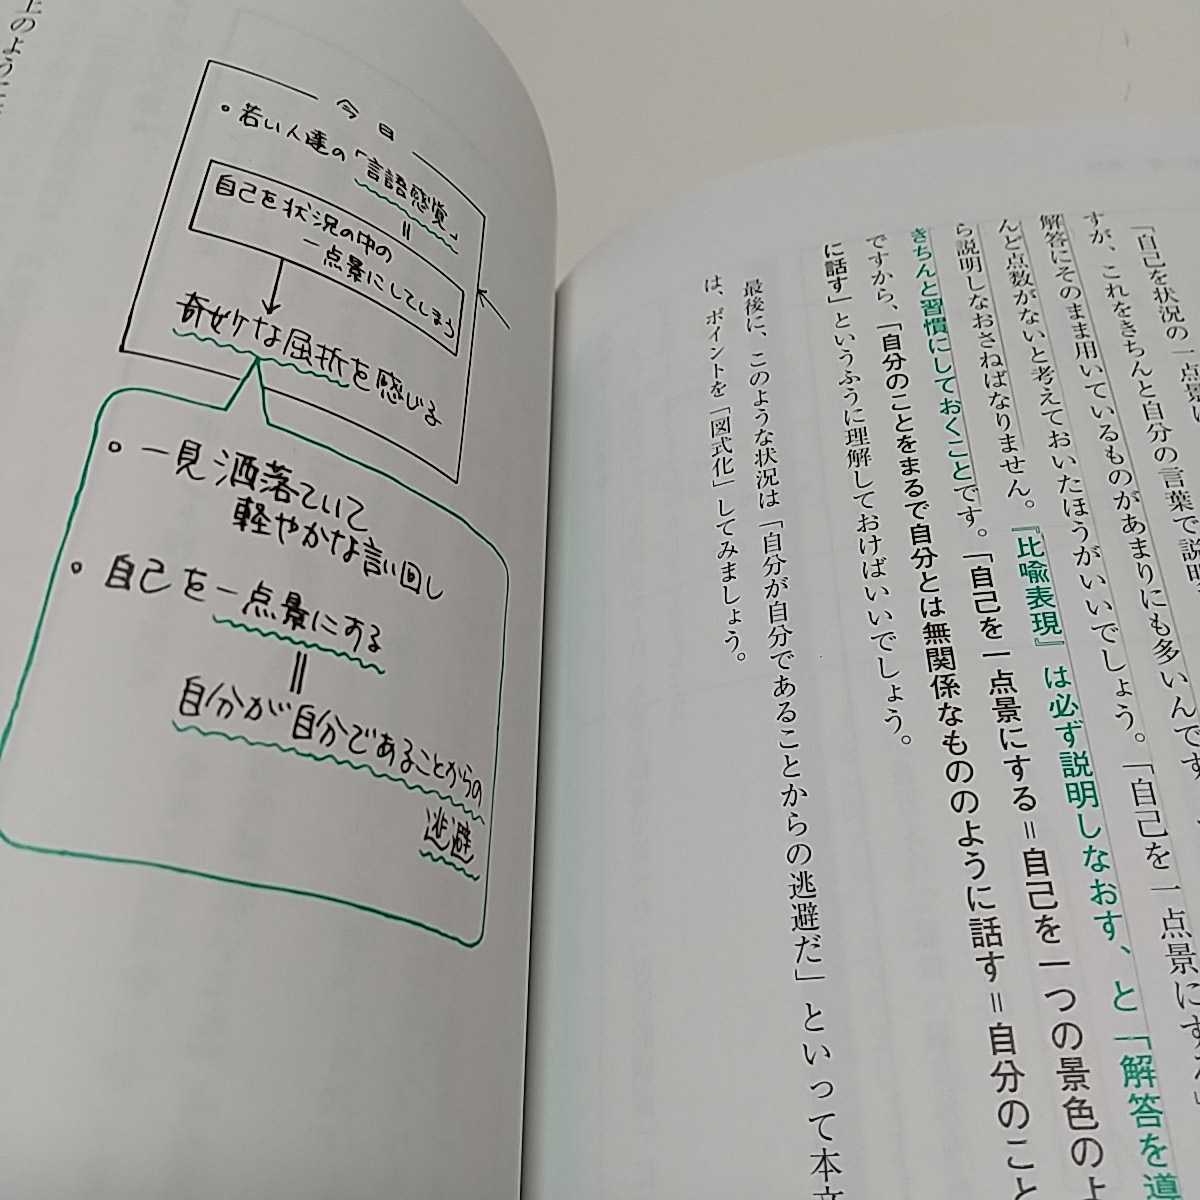 「自己を状況の一点景に
すが、これをきちんと自分の言葉で説明
解答にそのまま用いているものがあまりにも多いんです
んど点数がないと考えておいたほうがいいでしょう。「自己を一点景にする」
ら説明しなおさねばなりません。『比喩表現』は必ず説明しなおす、と「解答を導
きちんと習慣にしておくことです。「自己を一点景にする＝自己を一つの景色のよ
ですから、「自分のことをまるで自分とは無関係なもののように話す＝自分のこと
に話す」というふうに理解しておけばいいでしょう。
最後に、このような状況は「自分が自分であることからの逃避だ」といって本文
は、ポイントを「図式化」してみましょう。
今日
若い人達の「言語感覚」
＝
自己を状況の中の
一点景にしてしまう
↓
奇妙な屈折を感じる
一見洒落ていて
軽やかな言い回し
自己を一点景にする
＝
自分が自分であることからの
逃避
上のように